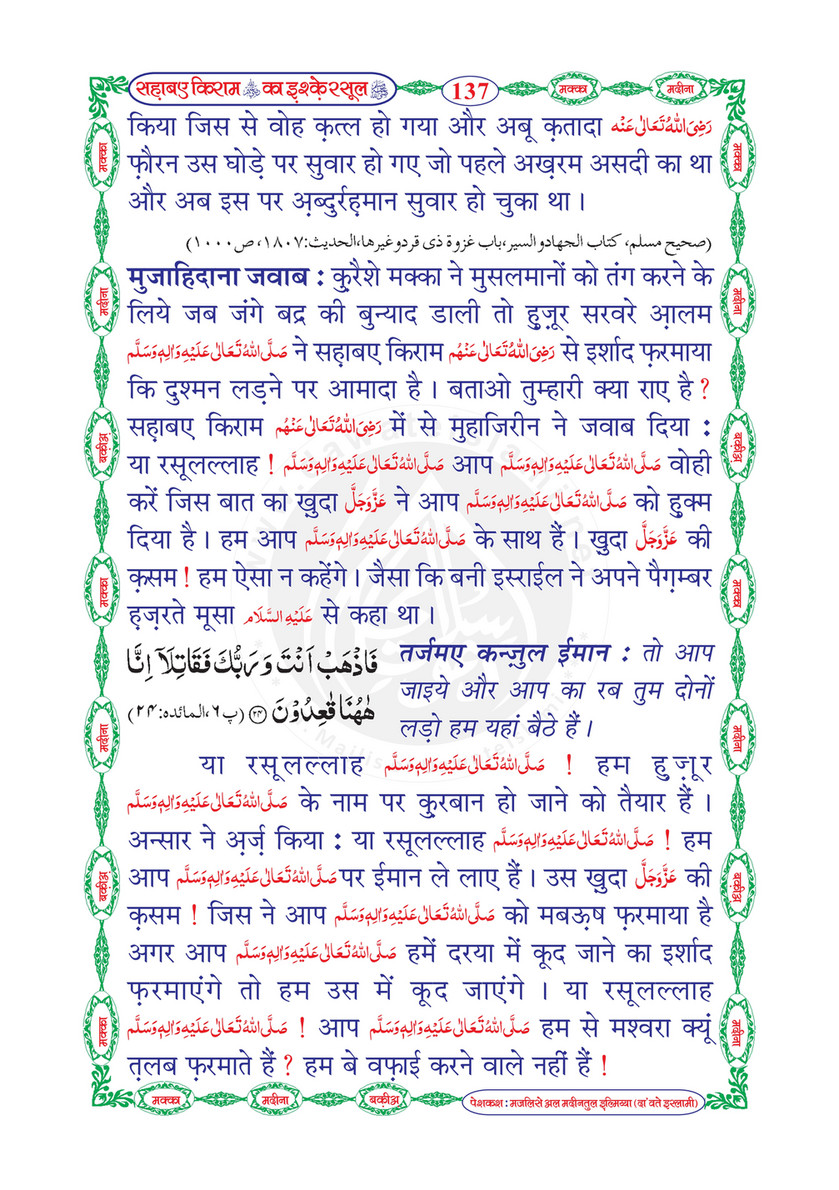 सह़ाबए किराम رضی اللہ عنہم का इ़श्के़ रसूल ﷺ 137 मक्का मदीना
किया जिस से वोह क़त्ल हो गया और अबू क़तादा رَضِیَ اللہُ تَعَالٰی عَنْہ
फ़ौरन उस घोड़े पर सुवार हो गए जो पहले अख़रम असदी का था
और अब इस पर अ़ब्दुर्रह़मान सुवार हो चुका था ।
(صحیح مسلم، کتاب الجھادو السیر،باب غزوة ذی قردوغیرھا،الحدیث:۱۸۰۷، ص۱۰۰۰)
मुजाहिदाना जवाब : कु़रैशे मक्का ने मुसलमानों को तंग करने के
लिये जब जंगे बद्र की बुन्याद डाली तो हु़ज़ूर सरवरे आ़लम
صَلَّی اللہُ تَعَالٰی عَلَیْہِ وَاٰلِہٖ وَسَلَّم ने सह़ाबए किराम رَضِیَ اللہُ تَعَالٰی عَنْہُم से इर्शाद फ़रमाया
कि दुश्मन लड़ने पर आमादा है । बताओ तुम्हारी क्या राए है ?
सह़ाबए किराम رَضِیَ اللہُ تَعَالٰی عَنْہُم में से मुहाजिरीन ने जवाब दिया :
या रसूलल्लाह ! صَلَّی اللہُ تَعَالٰی عَلَیْہِ وَاٰلِہٖ وَسَلَّم आप صَلَّی اللہُ تَعَالٰی عَلَیْہِ وَاٰلِہٖ وَسَلَّم वोही
करें जिस बात का ख़ुदा عَزَّوَجَلَّ ने आप صَلَّی اللہُ تَعَالٰی عَلَیْہِ وَاٰلِہٖ وَسَلَّم को हु़क्म
दिया है । हम आप صَلَّی اللہُ تَعَالٰی عَلَیْہِ وَاٰلِہٖ وَسَلَّم के साथ हैं । ख़ुदा عَزَّوَجَلَّ की
क़सम ! हम ऐसा न कहेंगे । जैसा कि बनी इस्राईल ने अपने पैग़म्बर
ह़ज़रते मूसा عَلَیْہِ السَّلَام से कहा था ।
فَاذْهَبْ اَنْتَ وَ رَبُّكَ فَقَاتِلَاۤ اِنَّا
هٰهُنَا قٰعِدُوْنَ ﴿۲۴﴾ (پ۶،المائدہ:۲۴)
तर्जमए कन्ज़ुल ईमान : तो आप
जाइये और आप का रब तुम दोनों
लड़ो हम यहां बैठे हैं ।
या रसूलल्लाह صَلَّی اللہُ تَعَالٰی عَلَیْہِ وَاٰلِہٖ وَسَلَّم ! हम हु़ज़ूर
صَلَّی اللہُ تَعَالٰی عَلَیْہِ وَاٰلِہٖ وَسَلَّم के नाम पर कु़रबान हो जाने को तैयार हैं ।
अन्सार ने अ़र्ज़ किया : या रसूलल्लाह صَلَّی اللہُ تَعَالٰی عَلَیْہِ وَاٰلِہٖ وَسَلَّم ! हम
आप صَلَّی اللہُ تَعَالٰی عَلَیْہِ وَاٰلِہٖ وَسَلَّم पर ईमान ले लाए हैं । उस ख़ुदा عَزَّوَجَلَّ की
क़सम ! जिस ने आप صَلَّی اللہُ تَعَالٰی عَلَیْہِ وَاٰلِہٖ وَسَلَّم को मबऊ़ष फ़रमाया है
अगर आप صَلَّی اللہُ تَعَالٰی عَلَیْہِ وَاٰلِہٖ وَسَلَّم हमें दरया में कूद जाने का इर्शाद
फ़रमाएंगे तो हम उस में कूद जाएंगे । या रसूलल्लाह
صَلَّی اللہُ تَعَالٰی عَلَیْہِ وَاٰلِہٖ وَسَلَّم ! आप صَلَّی اللہُ تَعَالٰی عَلَیْہِ وَاٰلِہٖ وَسَلَّم हम से मश्वरा क्यूं
त़लब फ़रमाते हैं ? हम बे वफ़ाई करने वाले नहीं हैं !
मक्का मदीना बक़ीअ़ पेशकश : मजलिसे अल मदीनतुल इ़ल्मिय्या (दा'वते इस्लामी)
मक्का
मदीना
बक़ीअ़
मक्का
मदीना
बक़ीअ़
मक्का
मक्का
मदीना
बक़ीअ़
मक्का
मदीना
बक़ीअ़
मदीना